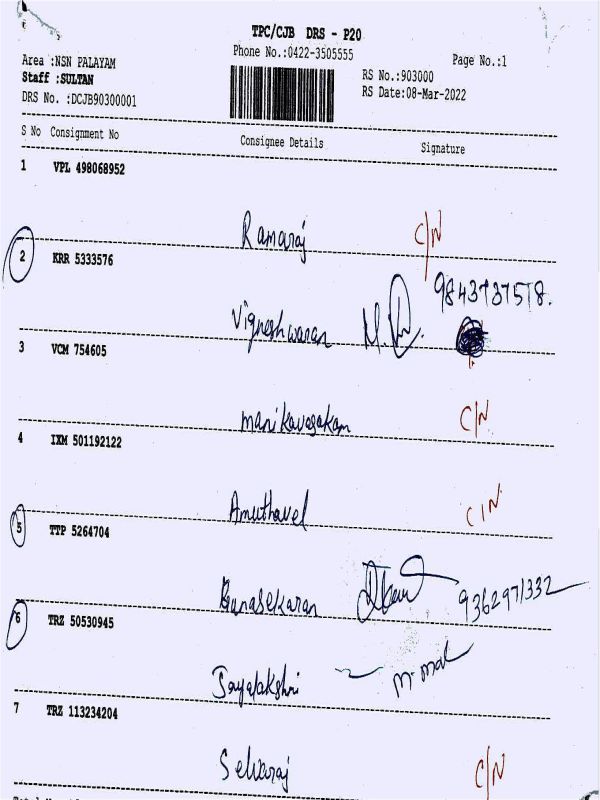 TPC/CJB DRS - P20
Phone No.:0422-3505555
Area :NSN PALAYAM
Page No.:1
Staff :SULTAN
RS No.:903000
DRS No. :DCJB90300001
RS Date:08-Mar-2022
S No Consignment No Consignee Details Signature
1 VPL 498068952
Ramaraj C/N
2 KRR 5333576
9843737578.
Vigneshwaran
3 VCM 754605
Manikavasakam C/N
4 IXM 501192122
Amuthavel C/N
5 TTP 5264704
Gunasekaran 9362971332
6 TRZ 50530945
Jayalakshmi
7 TRZ 113234204
Selvaraj C/N